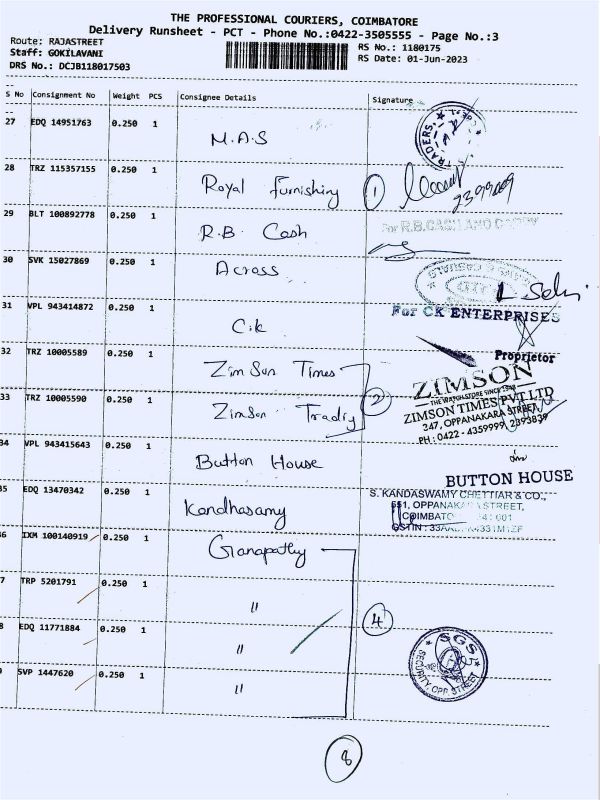 THE PROFESSIONAL COURIERS, COIMBATORE
Delivery Runsheet - PCT - Phone No.:0422-3505555 - Page No.:3
Route: RAJASTREET
Staff: GOKILAVANI
DRS No.: DCJB118017503
RS No.: 1180175
RS Date: 01-Jun-2023
S No Consignment No Weight PCS Consignee Details Signature
27 EDQ 14951763 0.250 1 M.A.S
TRADERS
28 TRZ 115357155 0.250 1 Royal Furnishing 1
29 BLT 100892778 0.250 1 R.B. Cash
For R.B.CASH AND CARRY
30 SVK 15027869 0.250 1 Across
31 VPL 943414872 0.250 1 C.K
For CK ENTERPRISES
Proprietor
32 TRZ 10005589 0.250 1 Zim Son Times
33 TRZ 10005590 0.250 1 Zimson Trading 2
ZIMSON
THE WATCH STORE SINCE 1948
ZIMSON TIMES PVT LTD
347, OPPANAKARA STREET,
PH : 0422 - 4359999, 2393839
34 VPL 943415643 0.250 1 Button House
BUTTON HOUSE
35 EDQ 13470342 0.250 1 Kandhasamy
S. KANDASWAMY CHETTIAR & CO.,
551, OPPANAKARA STREET,
COIMBATORE 641 001
GSTIN : 33
36 IXM 100140919 0.250 1 Ganapathy
7 TRP 5201791 0.250 1 "
4
8 EDQ 11771884 0.250 1 "
SGS
SECURITY, OPP. STREET
9 SVP 1447620 0.250 1 "
8